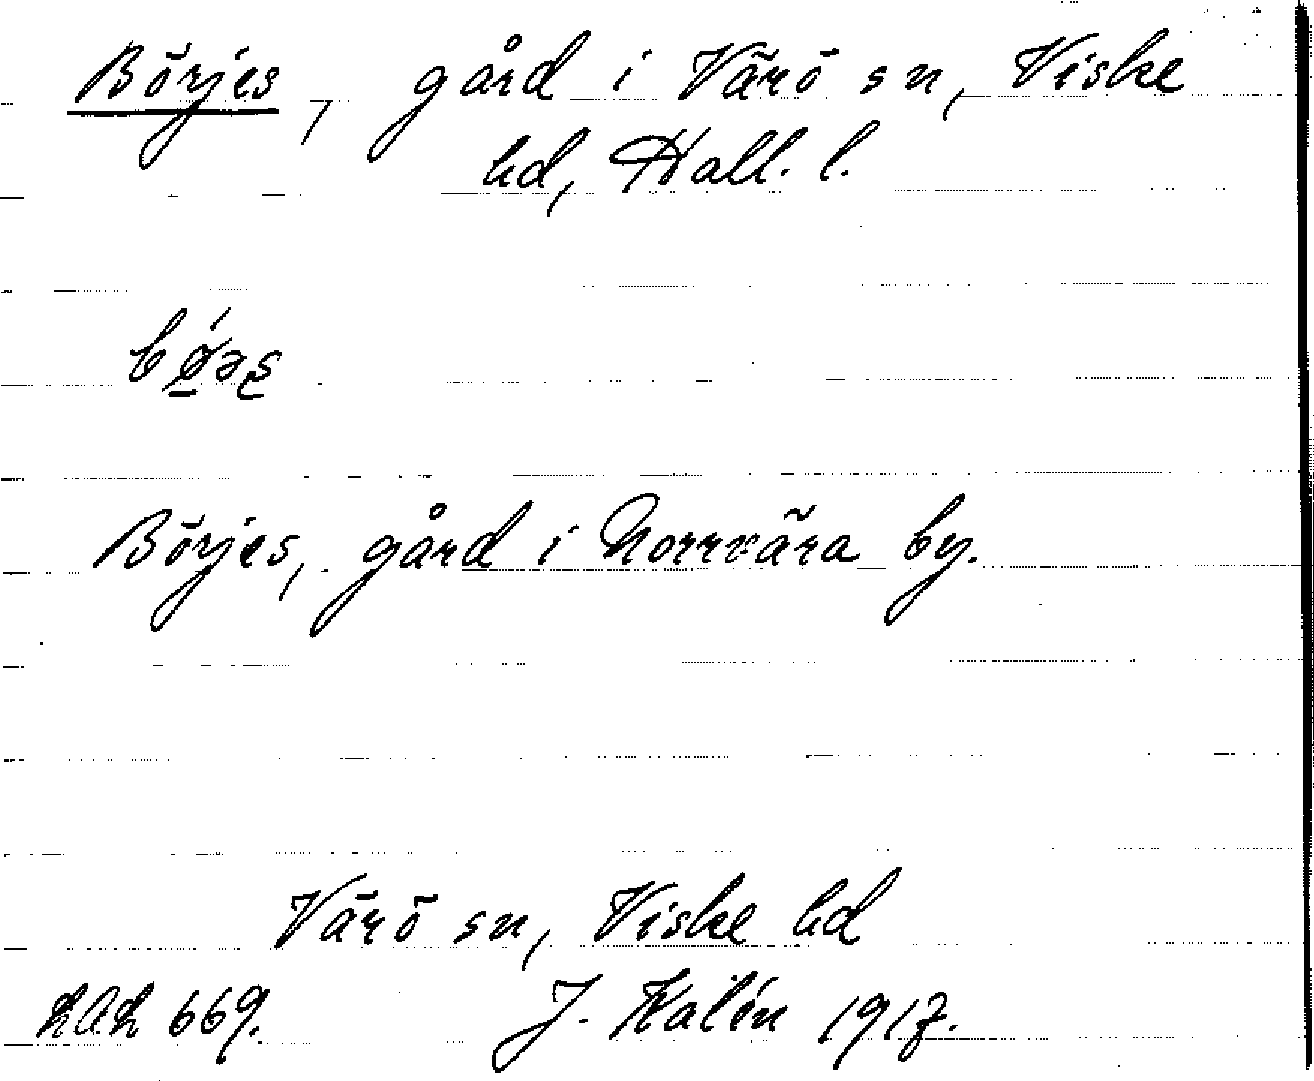 Börjes, gård i Värö sn, Viske
hd, Hall. l.
Börjes, gård i Norrvära by.
Värö sn, Viske hd
LAL 669. J. Kalén 1917.